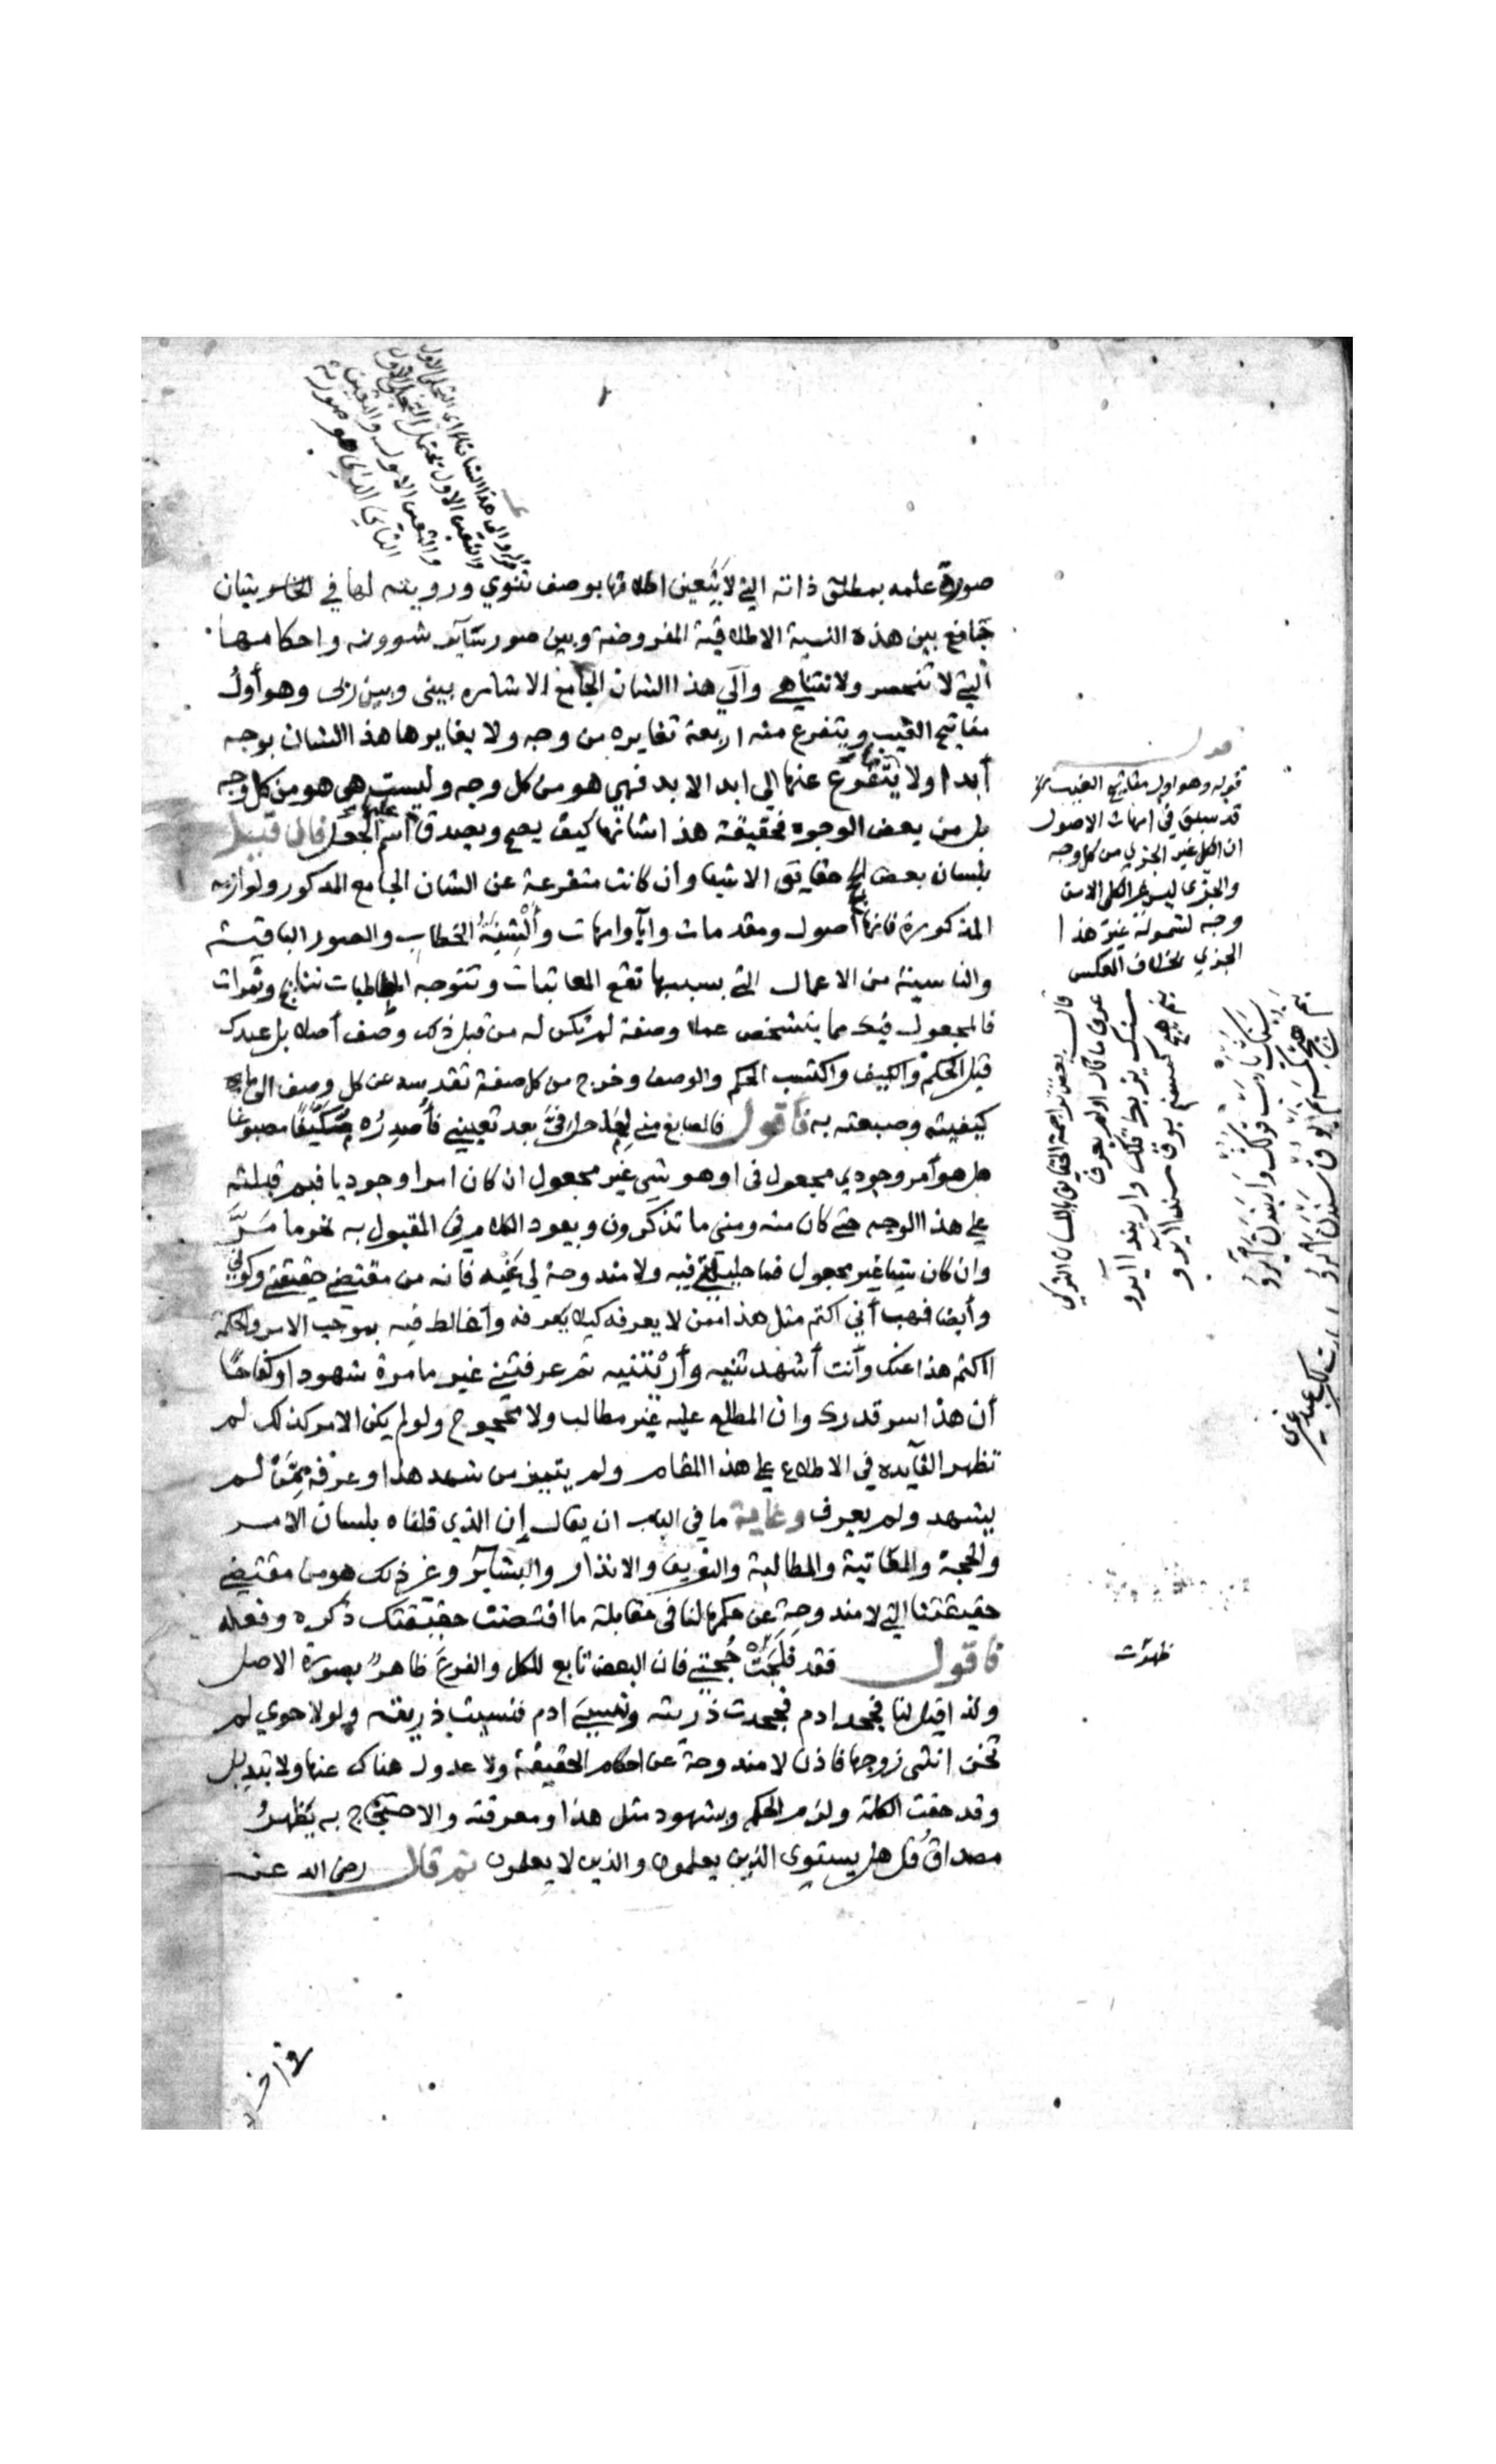 صورة علمه بمطلق ذاته التي لا يتعين اطلاقها بوصف ثنوي ورويته لها في بشان
جامع بين هذه النسبة الاطلاقية المفروضة وبين صور ساير شوونه واحكامها
التي لا تنحصر ولا تتناهي والي هذا الشان الجامع الاشاره بيني وبين ربي وهو أول
مفاتيح الغيب ويتفرع منه اربعة تغايره من وجه ولا يغايرها هذا الشان بوجه
أبدا ولا يتفرع عنها الي ابد الابد فهي هو من كل وجه وليست هي هو من كل وجه
بل من بعض الوجوه فحقيقة هذا شانها كيف يصح ويصدق عليها اسم الجعل فان قيل
بلسان بعض حقايق الاشيا وان كانت متفرعة عن الشان الجامع المذكور ولوازمه
المذكورة فانها أصول ومقدمات وآبا وامهات وألسنة الخطاب والصور الباقية
والناشية من الاعمال التي بسببها تقع المعاتبات وتتوجه المطالبات نتايج وثمرات
فالمجعول فيك مما يتشخص عملا وصفة لم تكن له من قبل ذلك وصف أصلا بل عبدك
قبل الحكم والكيف واكتسب الحكم والوصف وخرج من كل صفة تقدسه عن كل وصف الي
كيفيته وصبغته به فأقول فالصابغ مني لما حل في بعد تعيني فأصدره متكيفا مصبوغا
هل هو أمر وجودي مجعول في او هو شي غير مجعول ان كان امرا وجوديا فبم قبلته
علي هذا الوجه حتي كان منه ومني ما تذكرون ويعود الكلام في المقبول به نحو ما مر
وان كان شيا غير مجعول فما حليتي فيه ولا مندوحة لي عنه فانه من مقتضي حقيقتي وكوني
وأيضا فهب أني اكتم مثل هذا ممن لا يعرفه كيلا يعرفه وأغالط فيه بموجب الامر والحكمة
أاكتم هذا عنك وأنت أشهدتنيه وأريتنيه ثم عرفتني غير ما مرة شهودا وكفاحا
أن هذا سر قدرك وان المطلع عليه غير مطالب ولا محجوج ولو لم يكن الامر كذلك لم
تظهر الفايده في الاطلاع علي هذا المقام ولم يتميز من شهد هذا وعرفه ممن لم
يشهد ولم يعرف وغاية ما في الباب ان يقال إن الذي قلناه بلسان الامر
والحجة والمعاتبة والمطالبة والتخويف والانذار والبشاير وغير ذلك هو من مقتضي
حقيقتنا التي لا مندوحة عن حكمها لنا في مقابلة ما اقتضت حقيقتك ذكره وفعله
فأقول فقد فلجت حجتي فان البعض تابع للكل والفرع ظاهر بصورة الاصل
ولذا قيل لنا فجحد ادم فجحدت ذريته ونسي ادم فنسيت ذريته ولولا حوي لم
تخن انثي زوجها فاذن لا مندوحة عن احكام الحقيقة ولا عدول هناك عنها ولا تبديل
وقد حقت الكلمة ولزم الحكم وشهود مثل هذا ومعرفته والاحتجاج به يظهر
مصداق قل هل يستوي الذين يعلمون والذين لا يعلمون ثم قال رضي الله عنه
والي هذا الشان اي التجلي الاول
والتعين الاول يحتمل التجلي الاول
والتعين الاول والتعين
الثاني الذي هو صورته
قوله وهو اول مفاتيح الغيب
قد سبق في امهات الاصول
ان الكل غير الجزي من كل وجه
والجزي ليس غير الكل الا من
وجه لشموله غير هذا
الجزي بخلاف العكس
ظهرت